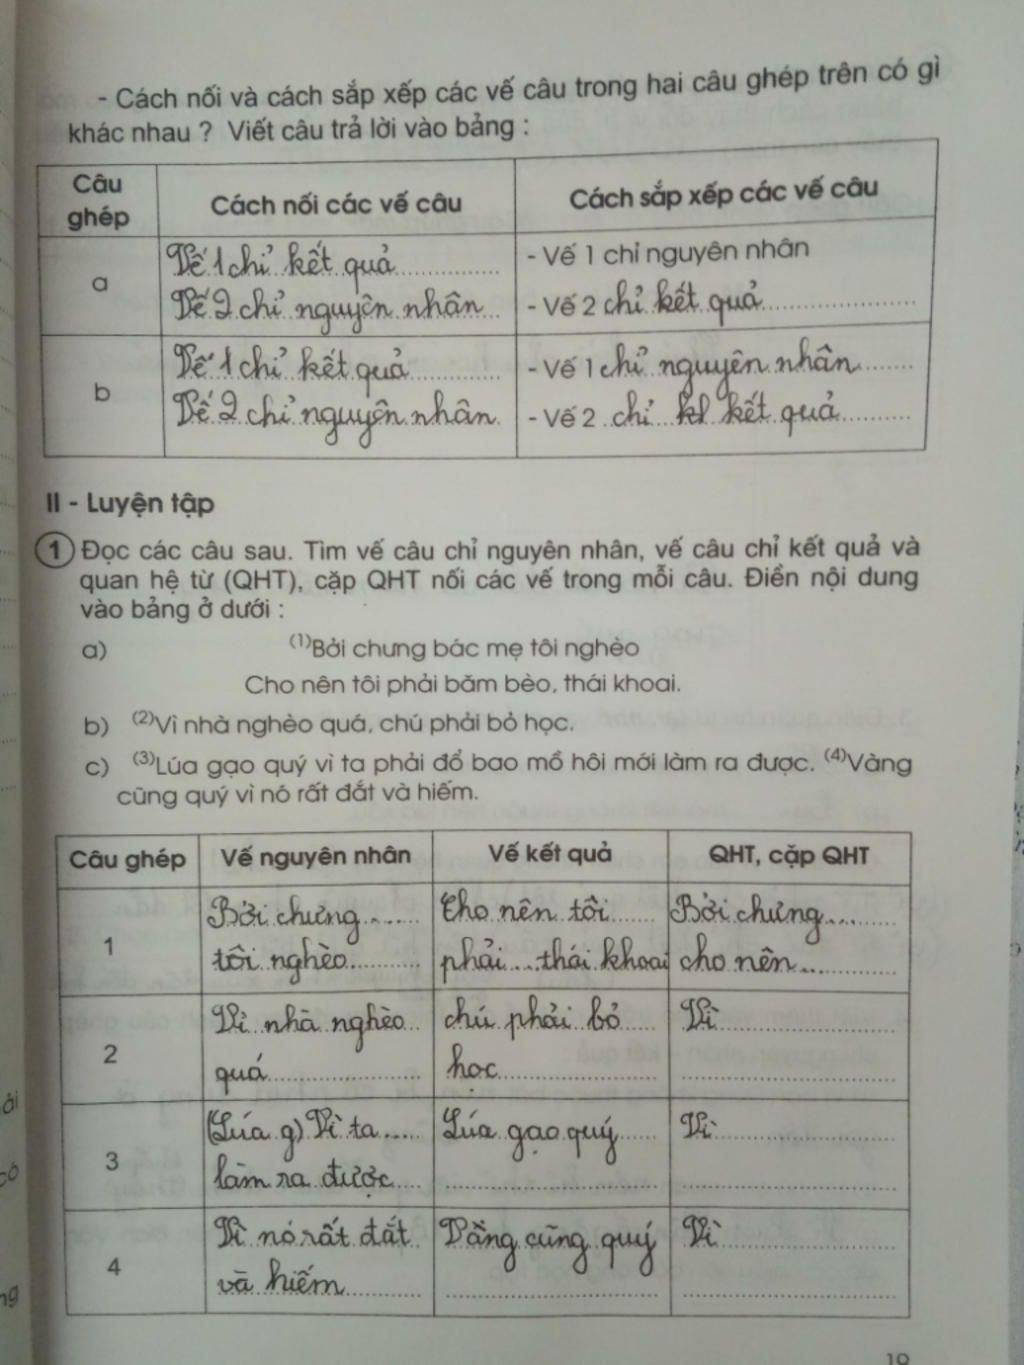 - Cách nối và cách sắp xếp các vế câu trong hai câu ghép trên có gì
khác nhau ? Viết câu trả lời vào bảng :
Câu ghép
Cách nối các vế câu
Cách sắp xếp các vế câu
a
Vế 1 chỉ kết quả
Vế 2 chỉ nguyên nhân
- Vế 1 chỉ nguyên nhân
- Vế 2 chỉ kết quả
b
Vế 1 chỉ kết quả
Vế 2 chỉ nguyên nhân
- Vế 1 chỉ nguyên nhân
- Vế 2 chỉ kl kết quả
II - Luyện tập
1 Đọc các câu sau. Tìm vế câu chỉ nguyên nhân, vế câu chỉ kết quả và
quan hệ từ (QHT), cặp QHT nối các vế trong mỗi câu. Điền nội dung
vào bảng ở dưới :
a) (1)Bởi chưng bác mẹ tôi nghèo
Cho nên tôi phải băm bèo, thái khoai.
b) (2)Vì nhà nghèo quá, chú phải bỏ học.
c) (3)Lúa gạo quý vì ta phải đổ bao mồ hôi mới làm ra được. (4)Vàng
cũng quý vì nó rất đắt và hiếm.
Câu ghép
Vế nguyên nhân
Vế kết quả
QHT, cặp QHT
1
Bởi chưng....
tôi nghèo
Cho nên tôi
phải...thái khoai
Bởi chưng...
cho nên...
2
Vì nhà nghèo
quá
chú phải bỏ
học
Vì
3
(Lúa g) Vì ta ....
làm ra được
Lúa gạo quý
Vì
4
Vì nó rất đắt
và hiếm
Vàng cũng quý
Vì
19